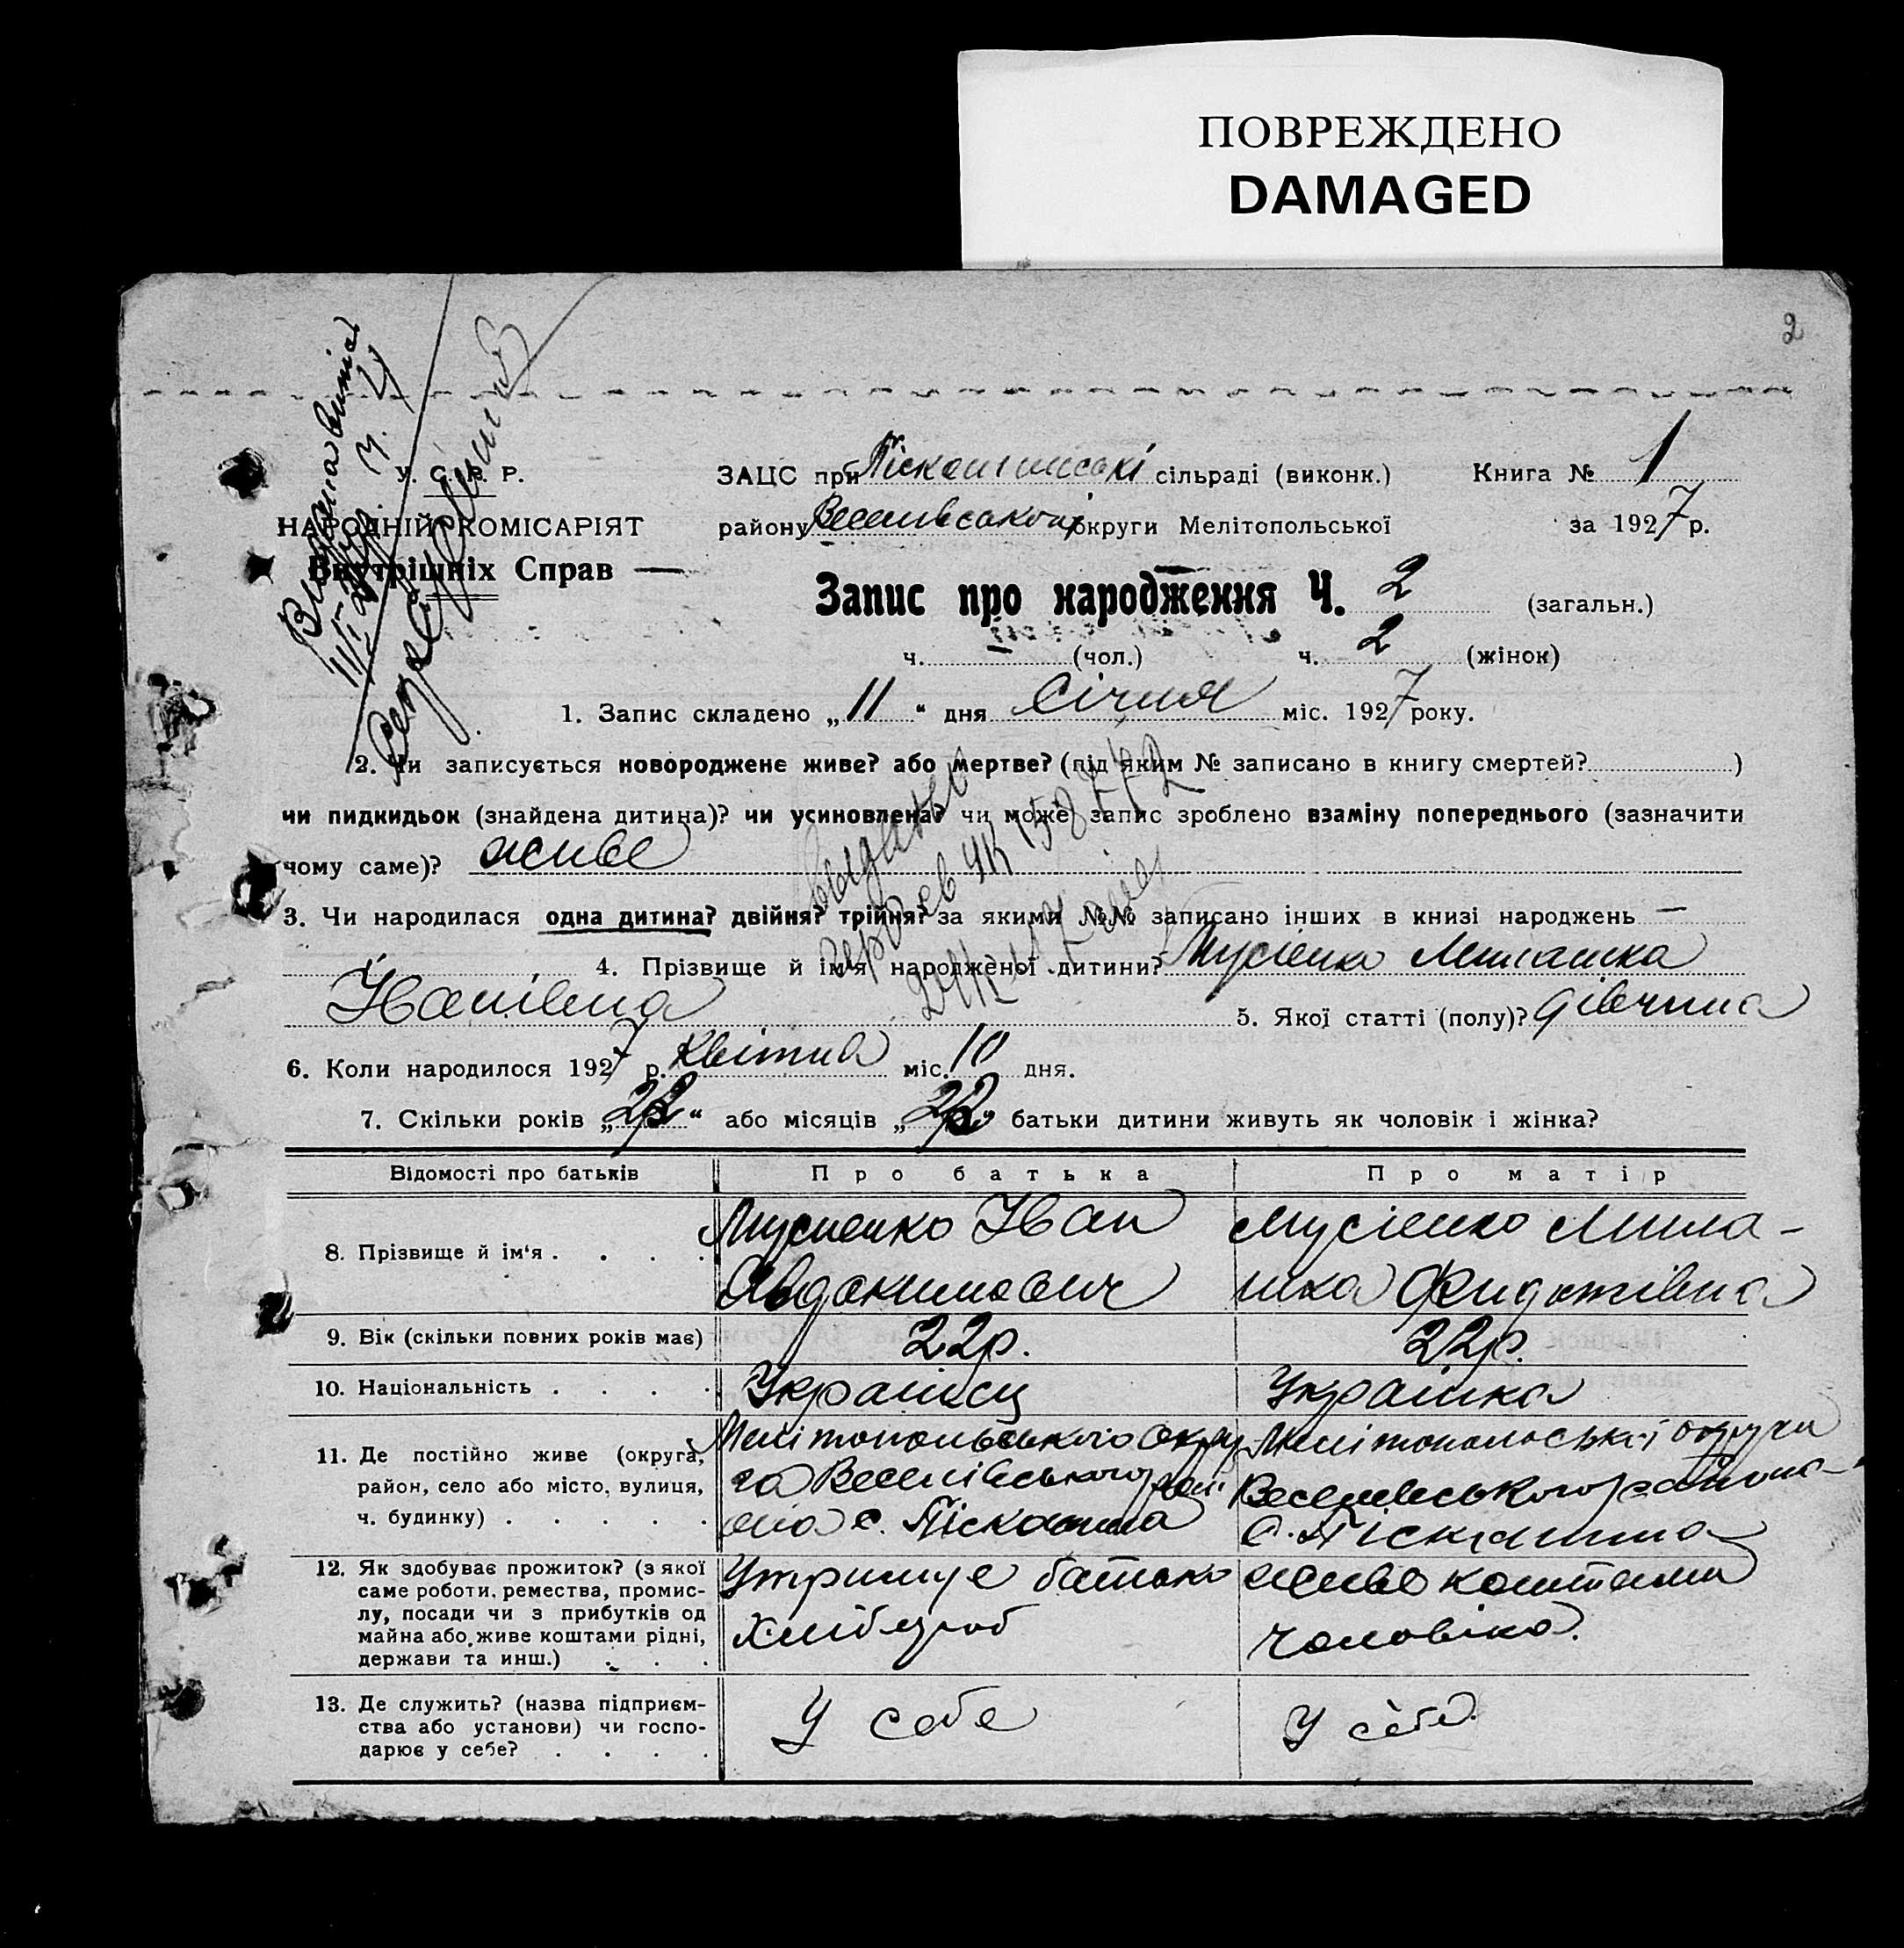 ПОВРЕЖДЕНО
DAMAGED
2
У. С. Р. Р.
НАРОДНІЙ КОМІСАРІЯТ
Внутрішніх Справ —
ЗАЦС при Піскошинські сільраді (виконк.) Книга № 1
району Веселівської округи Мелітопольської за 1927 р.
Запис про народження Ч. 2 (загальн.)
ч. — (чол.) ч. 2 (жінок)
1. Запис складено „11“ дня Січня міс. 1927 року.
2. Чи записується новороджене живе? або мертве? (під яким № записано в книгу смертей? )
чи пидкидьок (знайдена дитина)? чи усиновлена? чи може запис зроблено взаміну попереднього (зазначити
чому саме)? живе
3. Чи народилася одна дитина? двійня? трійня? за якими №№ записано інших в книзі народжень —
4. Прізвище й ім'я народженої дитини? Мусієнко
Іванівна 5. Якої статті (полу)? дівчина
6. Коли народилося 1927 р. квітня міс. 10 дня.
7. Скільки років „2р“ або місяців „ “ батьки дитини живуть як чоловік і жінка?
Відомості про батьків Про батька Про матір
8. Прізвище й ім'я . . . . Мусиенко Іван Мусіенко Мила-
Авдокимович шка
9. Вік (скільки повних років має) 22р. 22р.
10. Національність . . . . Украінец Украінка
11. Де постійно живе (округа, Мелітопольського окру Мелітопольські округи
район, село або місто, вулиця, га Веселівського рай Веселівського района
ч. будинку) . . . . . она с. Піскошина с. Піскошина
12. Як здобуває прожиток? (з якої Утримує батько живе коштами
саме роботи, ремества, промис- Хлібороб чоловіка.
лу, посади чи з прибутків од
майна або живе коштами рідні,
держави та инш.) . . .
13. Де служить? (назва підприєм- У себе У себе.
ства або установи) чи госпо-
дарює у себе? . . . .